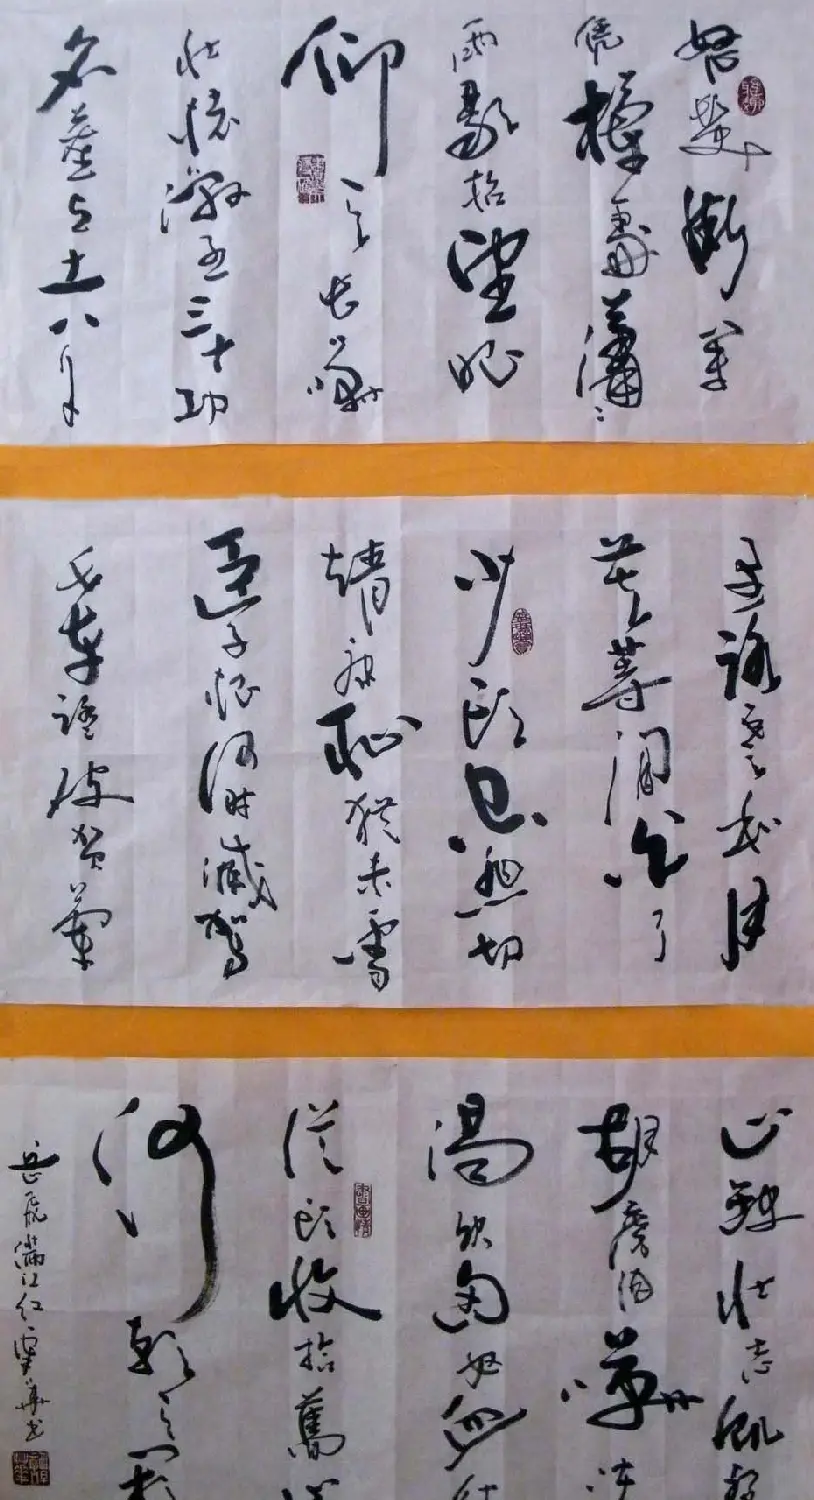 怒髮衝冠
憑欄處瀟〻
雨歇抬望眼
仰天長嘯
壯懷激烈三十功
名塵與土八千
里路雲和月
莫等閒白了
少頭空悲切
靖康恥猶未雪
臣子恨何時滅駕
長車踏破賀蘭
山缺壯志飢餐
胡虜肉笑談
渴飲匈奴血待
從頭收拾舊山
河朝天闕
岳飛滿江紅